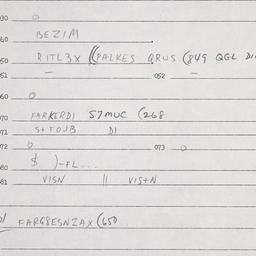 30 0
40 BEZIM
50 RITL3X ((PALKES QRUS (849 QGL
51 — 052 —
60 0
70 FARKERDI 57MUC (268
71 S+TOJB DI
72 0 073 0
80 $ )-FL...
81 VISN || VIS+N
FARG8ESNZAX (650